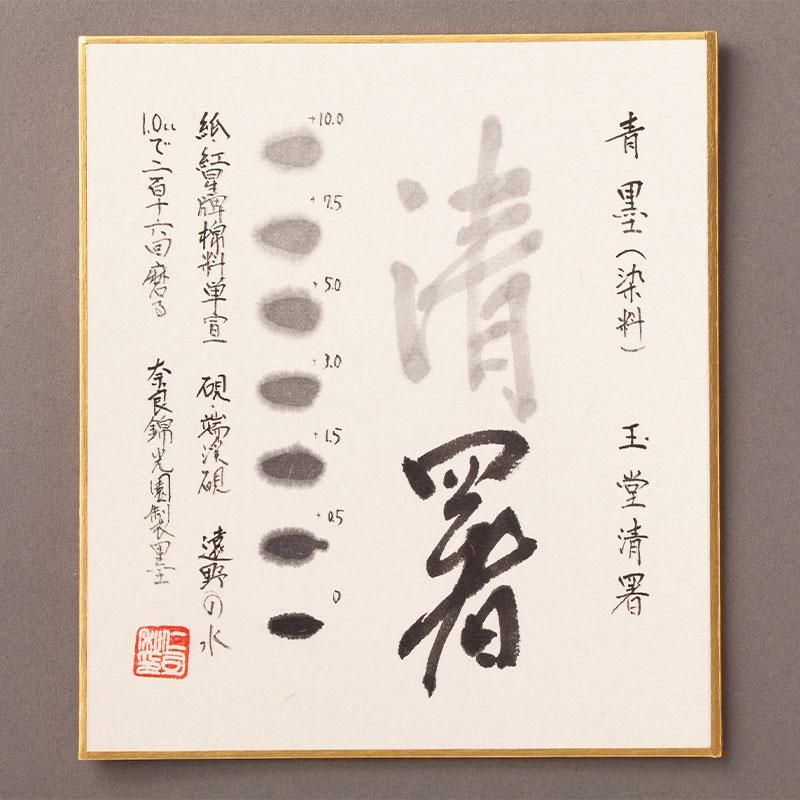 青墨(染料) 玉堂清署
清署
+10.0
+7.5
+5.0
+3.0
+1.5
+0.5
0
紙・紅星牌棉料単宣 硯・端渓硯 遠野の水
1.0ccで二百十六回磨る 奈良錦光園製墨